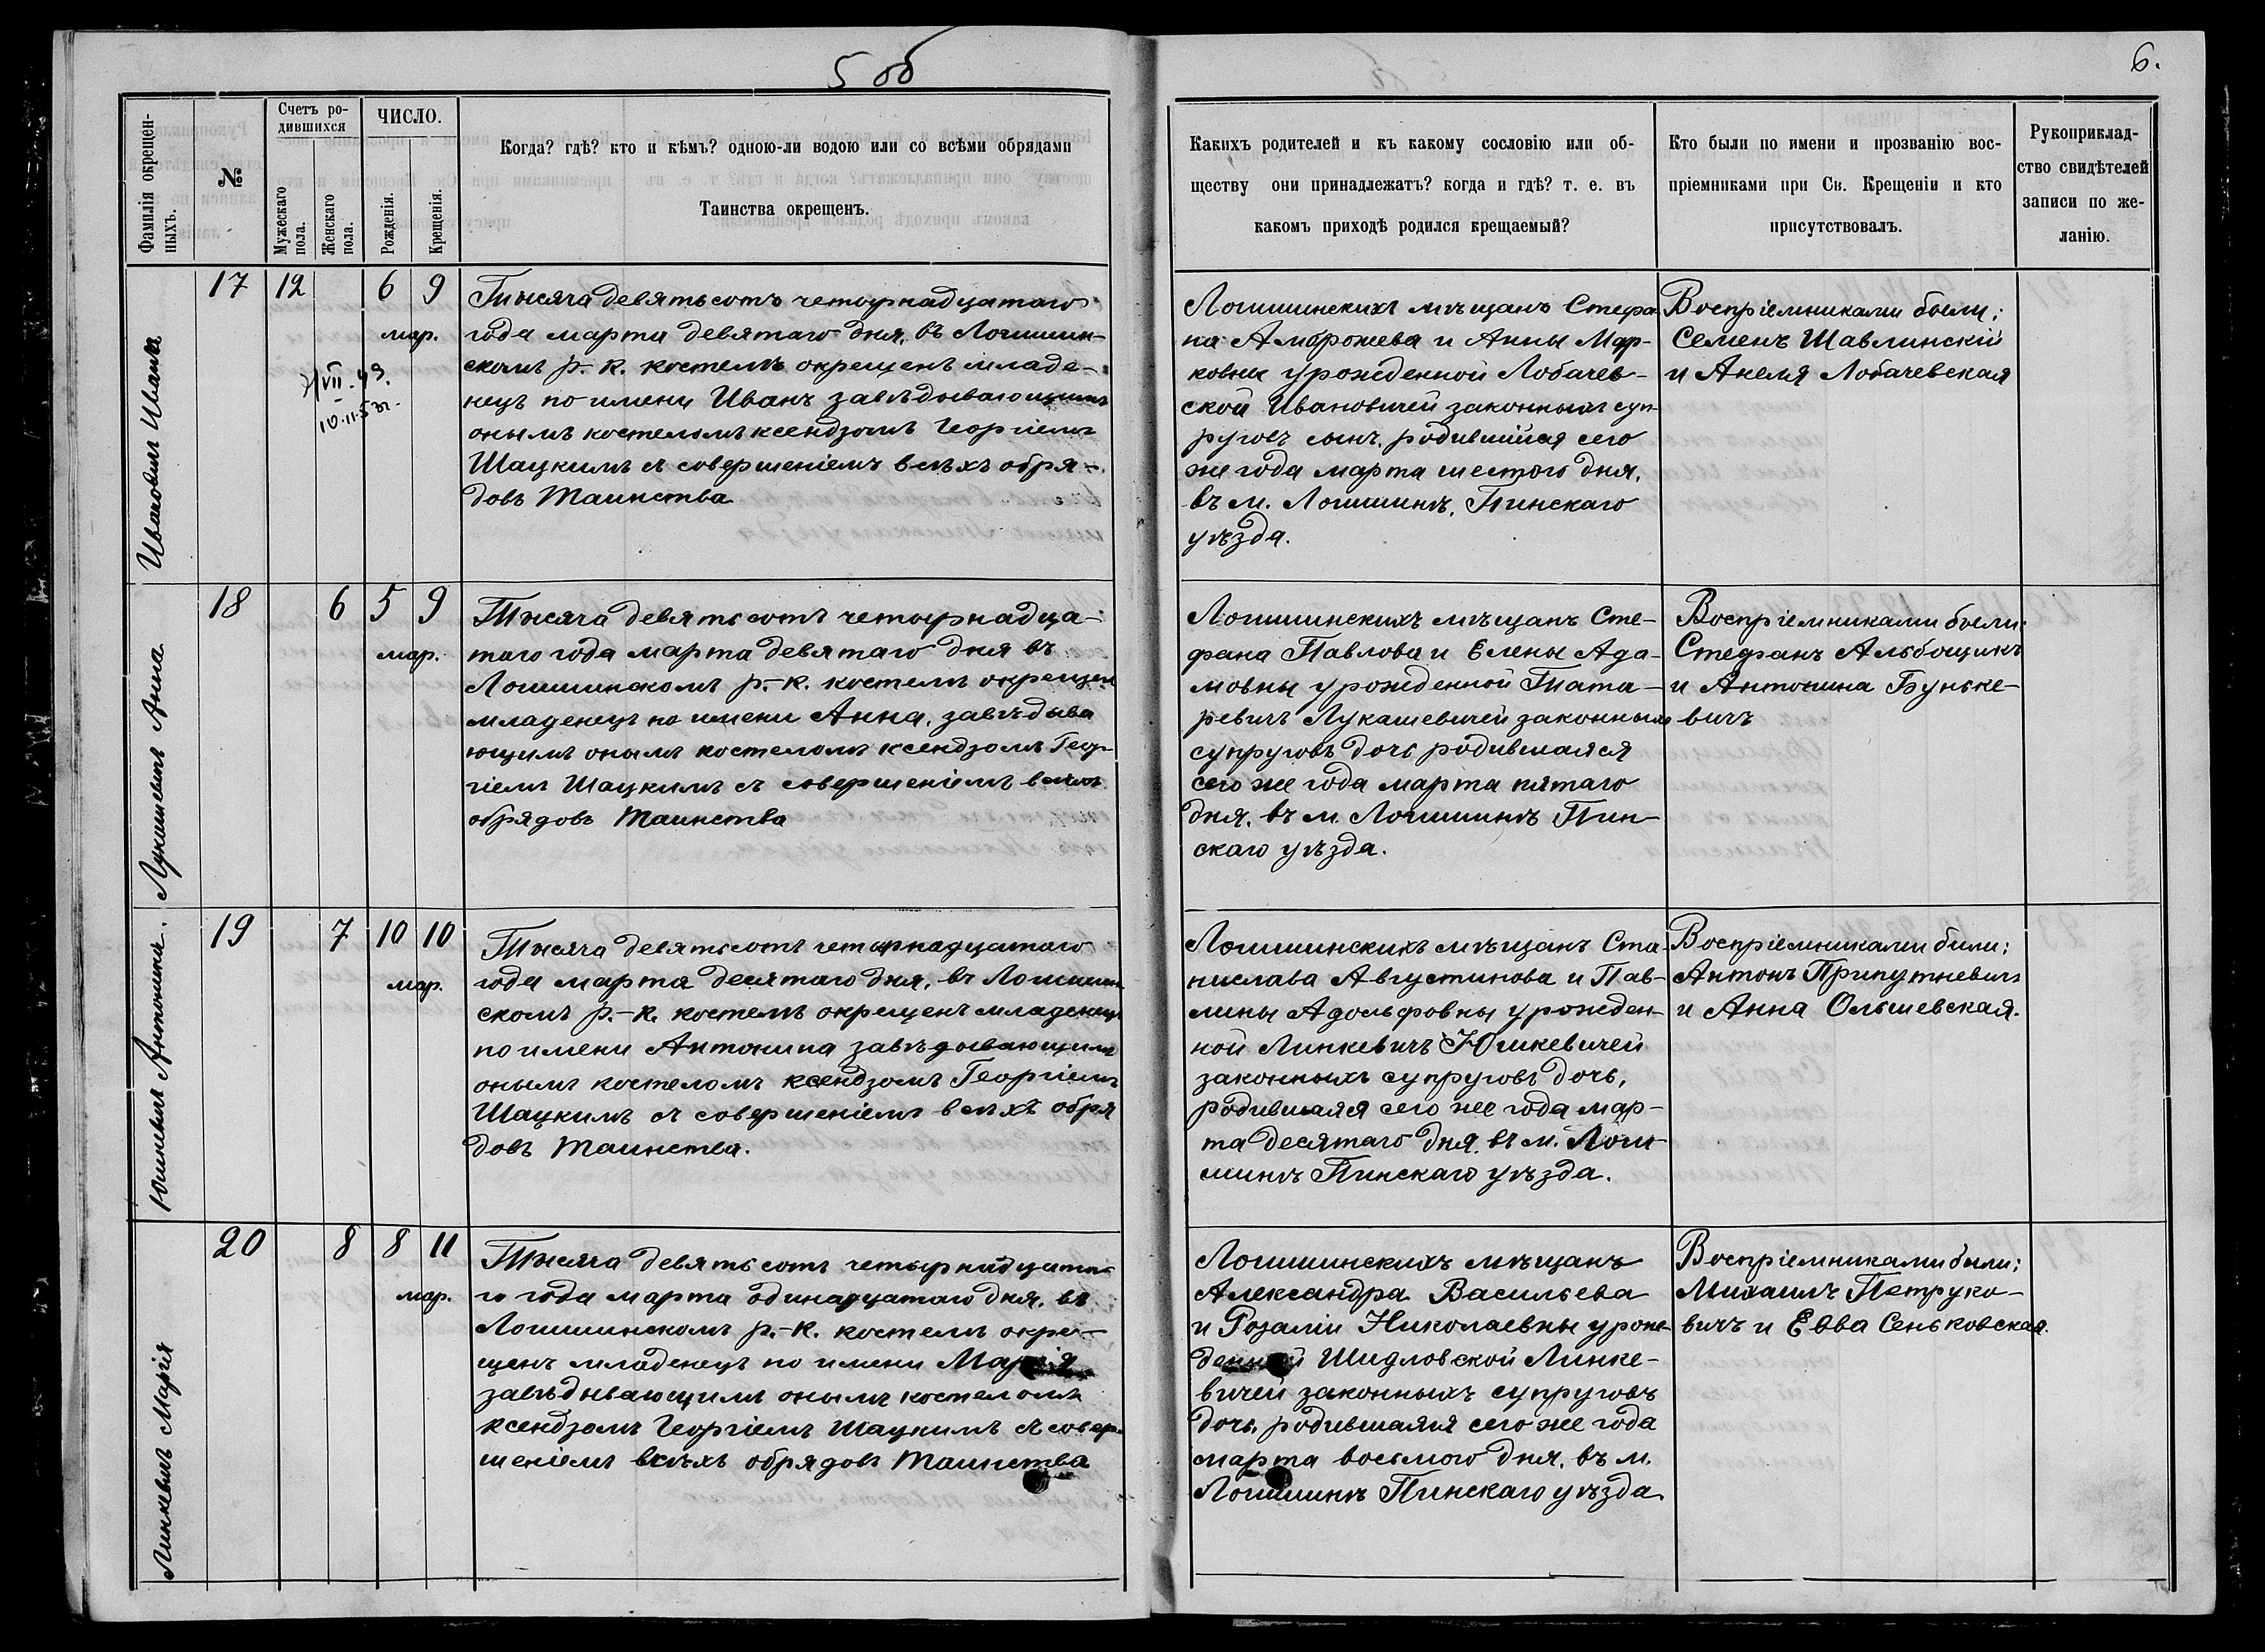 5 об
6.
Фамилія окрещен-
ныхъ.
№
Счетъ ро-
дившихся
Мужескаго
пола.
Женскаго
пола.
ЧИСЛО.
Рожденія.
Крещенія.
Когда? гдѣ? кто и кѣмъ? одною-ли водою или со всѣми обрядами
Таинства окрещенъ.
Какихъ родителей и къ какому сословію или об-
ществу они принадлежатъ? когда и гдѣ? т. е. въ
какомъ приходѣ родился крещаемый?
Кто были по имени и прозванію вос-
пріемниками при Св. Крещеніи и кто
присутствовалъ.
Рукоприклад-
ство свидѣтелей
записи по же-
ланію.
Ивановичъ Иванъ
17 12 6 9
мар.
VII-43.
10.II.
Тысяча девятьсотъ четырнадцатаго
года марта девятаго дня, въ Логишин-
скомъ р.-к. костелѣ окрещенъ младе-
нецъ по имени Иванъ завѣдывающимъ
онымъ костеломъ ксендзомъ Георгіемъ
Шацкимъ съ совершеніемъ всѣхъ обря-
довъ Таинства
Логишинскихъ мѣщанъ Стефа
на Амброжева и Анны Мар-
ковны урожденной Лобачев-
ской Ивановичей законныхъ суп-
руговъ сынъ, родившійся сего
же года марта шестого дня,
въ м. Логишинѣ, Пинскаго
уѣзда.
Воспріемниками были;
Семенъ Шавлинскій
и Анеля Лобачевская
Лукашевичъ Анна
18 6 5 9
мар.
Тысяча девятьсотъ четырнадца-
таго года марта девятаго дня въ
Логишинскомъ р.-к. костелѣ окрещен
младенецъ по имени Анна, завѣдыва
ющимъ онымъ костеломъ ксендзомъ Геор-
гіемъ Шацкимъ съ совершеніемъ всѣхъ
обрядовъ Таинства
Логишинскихъ мѣщанъ Сте-
фана Павлова и Елены Ада-
мовны урожденной Тата-
ревичъ Лукашевичей законныхъ
супруговъ дочь родившаяся
сего же года марта пятаго
дня, въ м. Логишинѣ Пин-
скаго уѣзда.
Воспріемниками были:
Стефанъ Альбощикъ
и Антонина Буньке-
вичъ
Юшкевичъ Антонина.
19 7 10 10
мар.
Тысяча девятьсотъ четырнадцатаго
года марта десятаго дня, въ Логишин
скомъ р.-к. костелѣ окрещенъ младенец
по имени Антонина завѣдывающимъ
онымъ костеломъ ксендзомъ Георгіемъ
Шацкимъ съ совершеніемъ всѣхъ обря
довъ Таинства.
Логишинскихъ мѣщанъ Ста-
нислава Августинова и Пав-
лины Адольфовны урожден-
ной Линкевичъ Юшкевичей
законныхъ супруговъ дочь,
родившаяся сего же года мар-
та десятаго дня, въ м. Логи-
шинѣ Пинскаго уѣзда.
Воспріемниками были;
Антонъ Припутневичъ
и Анна Ольшевская.
Линкевичъ Марія
20 8 8 11
мар.
Тысяча девятьсотъ четырнадцата-
го года марта одинадцатаго дня, въ
Логишинскомъ р.-к. костелѣ окре-
щенъ младенецъ по имени Марія
завѣдывающимъ онымъ костеломъ
ксендзомъ Георгіемъ Шацкимъ съ совер-
шеніемъ всѣхъ обрядовъ Таинства
Логишинскихъ мѣщанъ
Александра Васильева
и Розаліи Николаевны урож-
денной Шидловской Линке-
вичей законныхъ супруговъ
дочь, родившаяся сего же года
марта восьмого дня, въ м.
Логишинѣ Пинскаго уѣзда
Воспріемниками были;
Михаилъ Петруко-
вичъ и Евва Сеньковская.